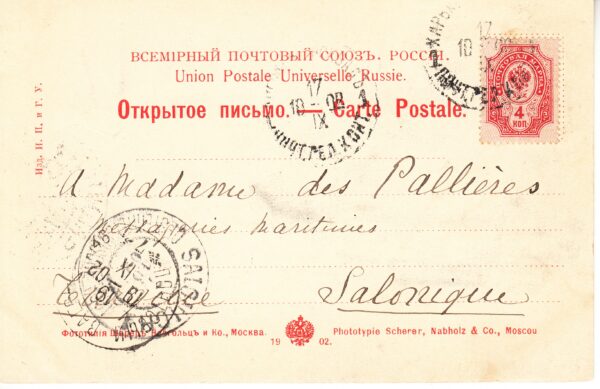 ВСЕМІРНЫЙ ПОЧТОВЫЙ СОЮЗЪ. РОССІЯ.
Union Postale Universelle Russie.
Открытое письмо. — Carte Postale.
Изд. И. П. и Г. У.
17
10 – 03
IX
ПОЧТОВАЯ МАРКА
4
КОП
A Madame des Pallières
Messageries maritimes
Salonique
Фототипія Шереръ, Набгольцъ и Ко., Москва.
1902.
Phototypie Scherer, Nabholz & Co., Moscou